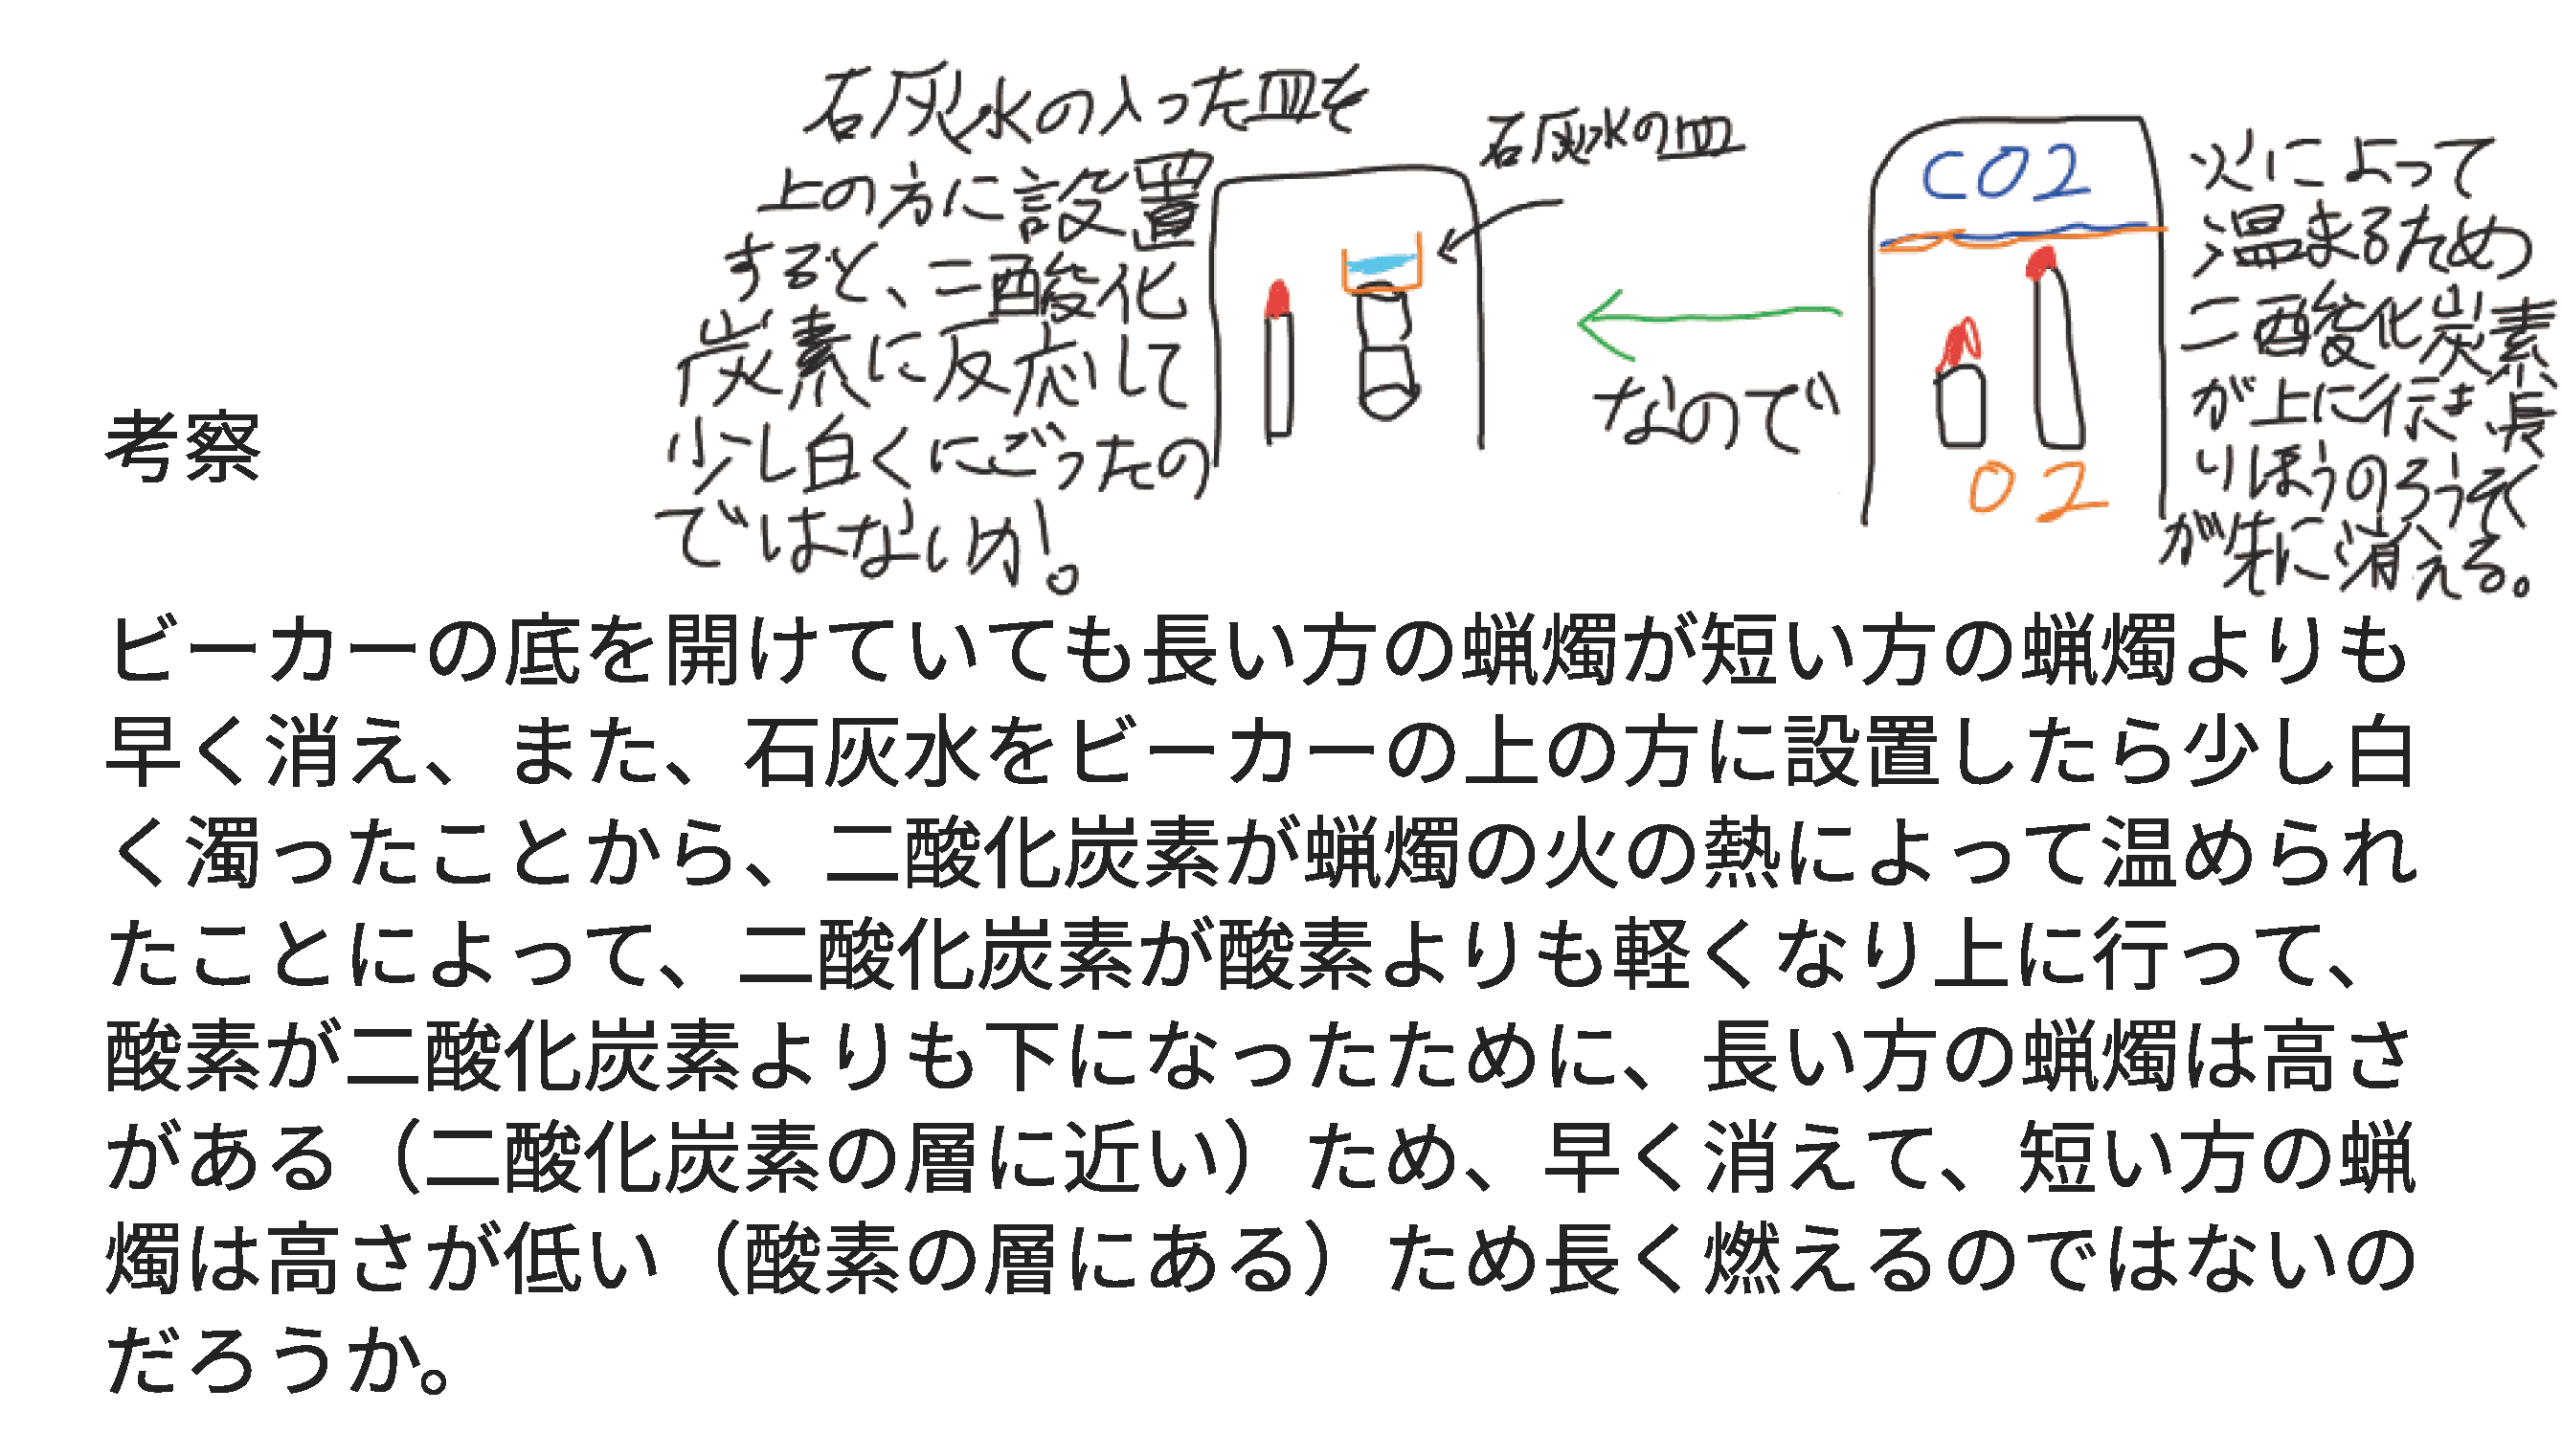 石灰水の入った皿を
上の方に設置
すると、二酸化
炭素に反応して
少し白くにごったの
ではないか!。
石灰水の皿
なので
CO2
O2
火によって
温まるため
二酸化炭素
が上に行き長
いほうのろうそく
が先に消える。
考察
ビーカーの底を開けていても長い方の蝋燭が短い方の蝋燭よりも
早く消え、また、石灰水をビーカーの上の方に設置したら少し白
く濁ったことから、二酸化炭素が蝋燭の火の熱によって温められ
たことによって、二酸化炭素が酸素よりも軽くなり上に行って、
酸素が二酸化炭素よりも下になったために、長い方の蝋燭は高さ
がある（二酸化炭素の層に近い）ため、早く消えて、短い方の蝋
燭は高さが低い（酸素の層にある）ため長く燃えるのではないの
だろうか。